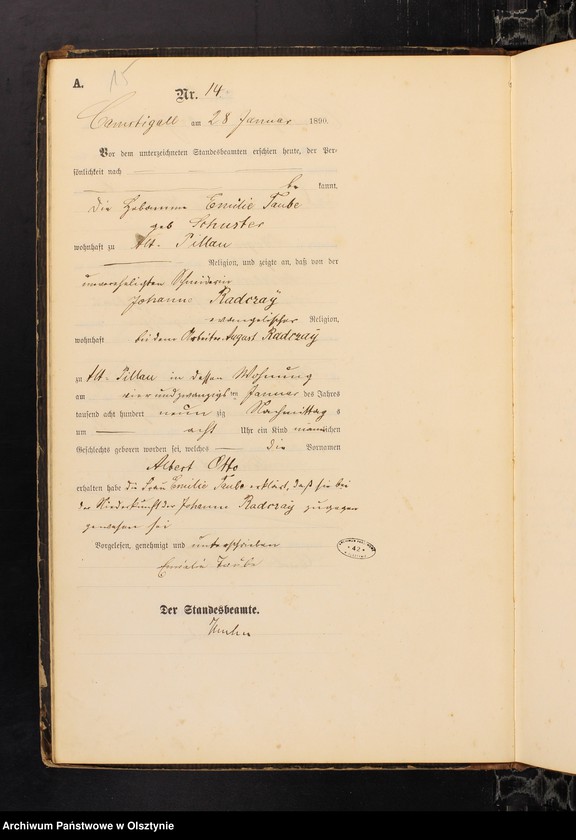 A.
15
Nr. 14
Camstigall am 28 Januar 1890.
Vor dem unterzeichneten Standesbeamten erschien heute, der Per-
sönlichkeit nach
be kannt,
die Hebamme Emilie Taube
geb Schuster
wohnhaft zu Alt-Pillau
Religion, und zeigte an, daß von der
unverehelichten Schneiderin
Johanne Radczaÿ
evangelischer Religion,
wohnhaft bei dem Arbeiter August Radczaÿ
zu Alt-Pillau in dessen Wohnung
am vier und zwanzigsten Januar des Jahres
tausend acht hundert neun zig Nachmittag s
um acht Uhr ein Kind männlichen
Geschlechts geboren worden sei, welches die Vornamen
Albert Otto
erhalten habe die Frau Emilie Taube erklärt, daß sie bei
der Niederkunft der Johanne Radczaÿ zugegen
gewesen sei
Vorgelesen, genehmigt und unterschrieben
Emielie Taube
42
Der Standesbeamte.
Archiwum Państwowe w Olsztynie